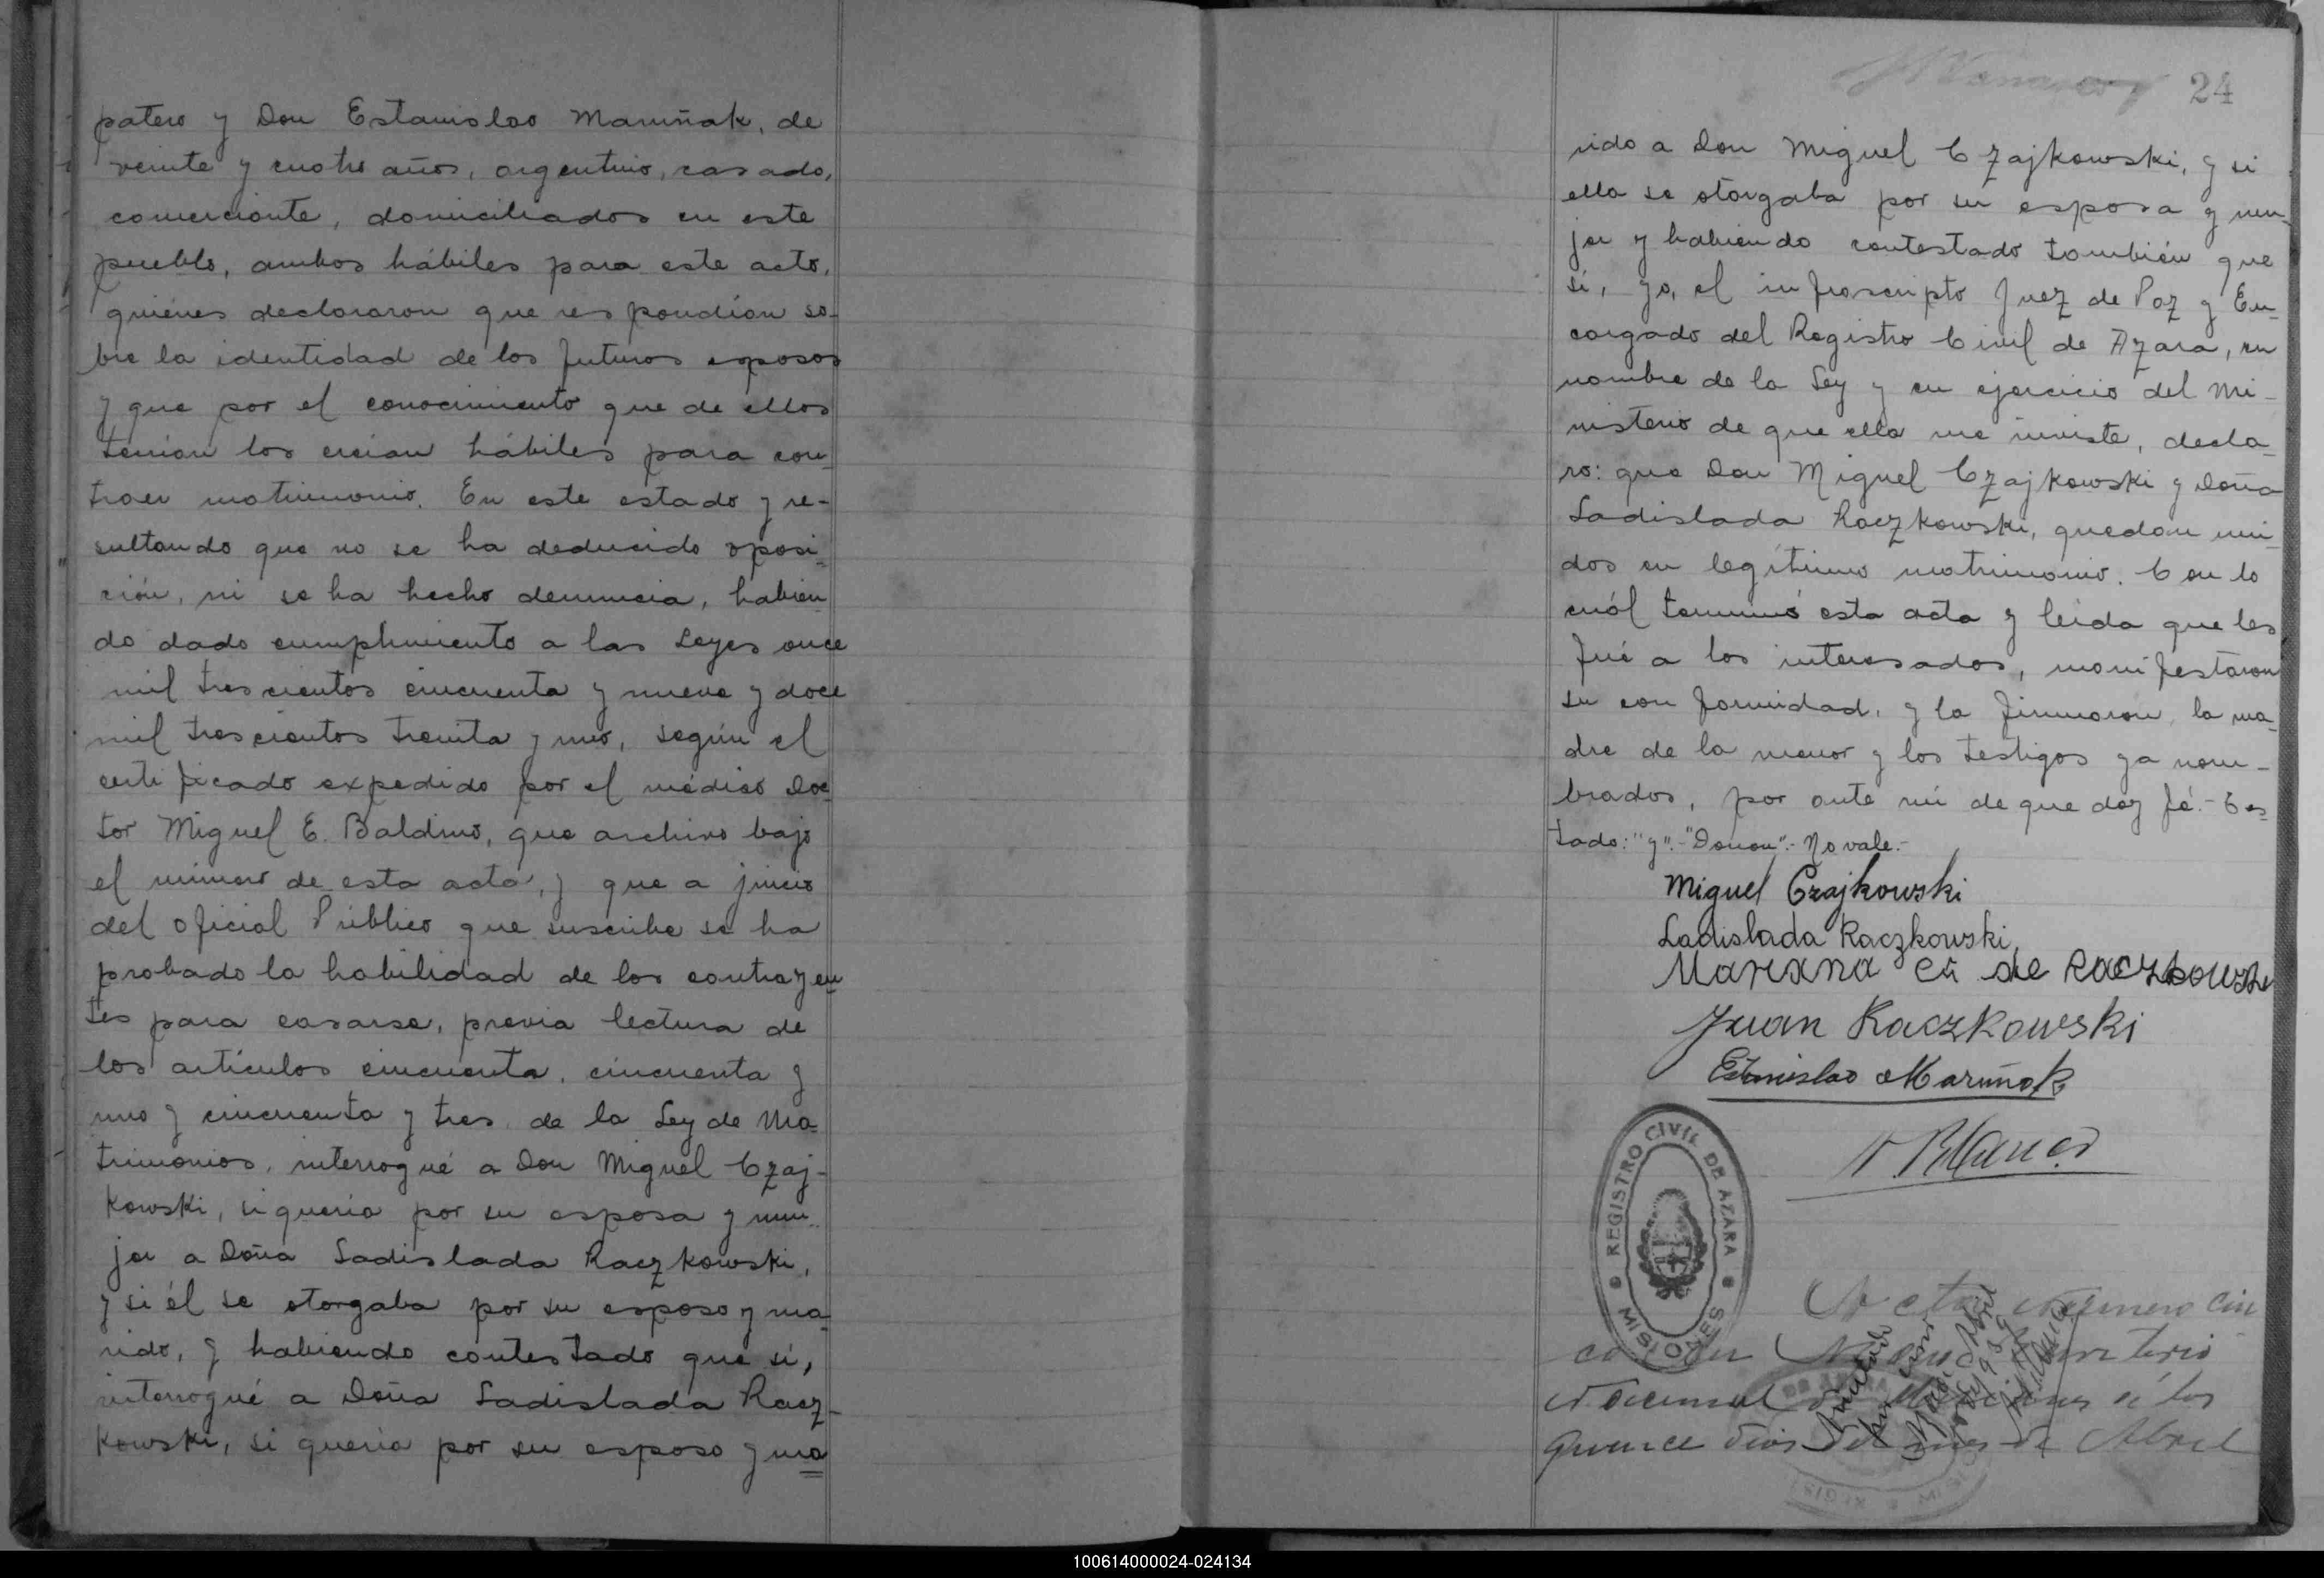 patero y Don Estanislao Maruñak, de
veinte y cuatro años, argentino, casado,
comerciante, domiciliados en este
pueblo, ambos hábiles para este acto,
quiénes declararon que respondían so-
bre la identidad de los futuros esposos
y que por el conocimiento que de ellos
tenían los creían hábiles para con-
traer matrimonio. En este estado y re-
sultando que no se ha deducido oposi-
ción, ni se ha hecho denuncia, habien
do dado cumplimiento a las Leyes once
mil trescientos cincuenta y nueve y doce
mil trescientos treinta y uno, según el
certificado expedido por el médico Doc-
tor Miguel E. Baldino, que archivo bajo
el número de esta acta, y que a juicio
del Oficial Público que suscribe se ha
probado la habilidad de los contrayen
tes para casarse, previa lectura de
los artículos cincuenta, cincuenta y
uno y cincuenta y tres de la Ley de Ma-
trimonios, interrogué a Don Miguel Czaj-
kowski, si quería por su esposa y mu-
jer a Doña Ladislada Raczkowski,
y si él se otorgaba por su esposo y ma-
rido, y habiendo contestado que sí,
interrogué a Doña Ladislada Racz-
kowski, si quería por su esposo y ma
24
rido a Don Miguel Czajkowski, y si
ella se otorgaba por su esposa y mu-
jer y habiendo contestado también que
sí, yo, el infrascripto Juez de Paz y En-
cargado del Registro Civil de Azara, en
nombre de la Ley y en ejercicio del Mi-
nisterio de que ella me inviste, decla-
ro: que Don Miguel Czajkowski y Doña
Ladislada Raczkowski, quedan uni-
dos en legítimo matrimonio. Con lo
cuál terminó esta acta y leída que les
fué a los interesados, manifestaron
su conformidad, y la firmaron, la ma-
dre de la menor y los testigos ya nom-
brados, por ante mí de que doy fé.- Tes-
tado: "y".- - No vale.-
Miguel Czajkowski
Ladislada Raczkowski
Mariana de Raczkowski
Juan Raczkowski
Estanislao Maruñak
REGISTRO CIVIL DE AZARA
MISIONES
Acta Número Cin
co En Territorio
Nacional de Misiones á los
quince dias del mes de Abril
100614000024-024134